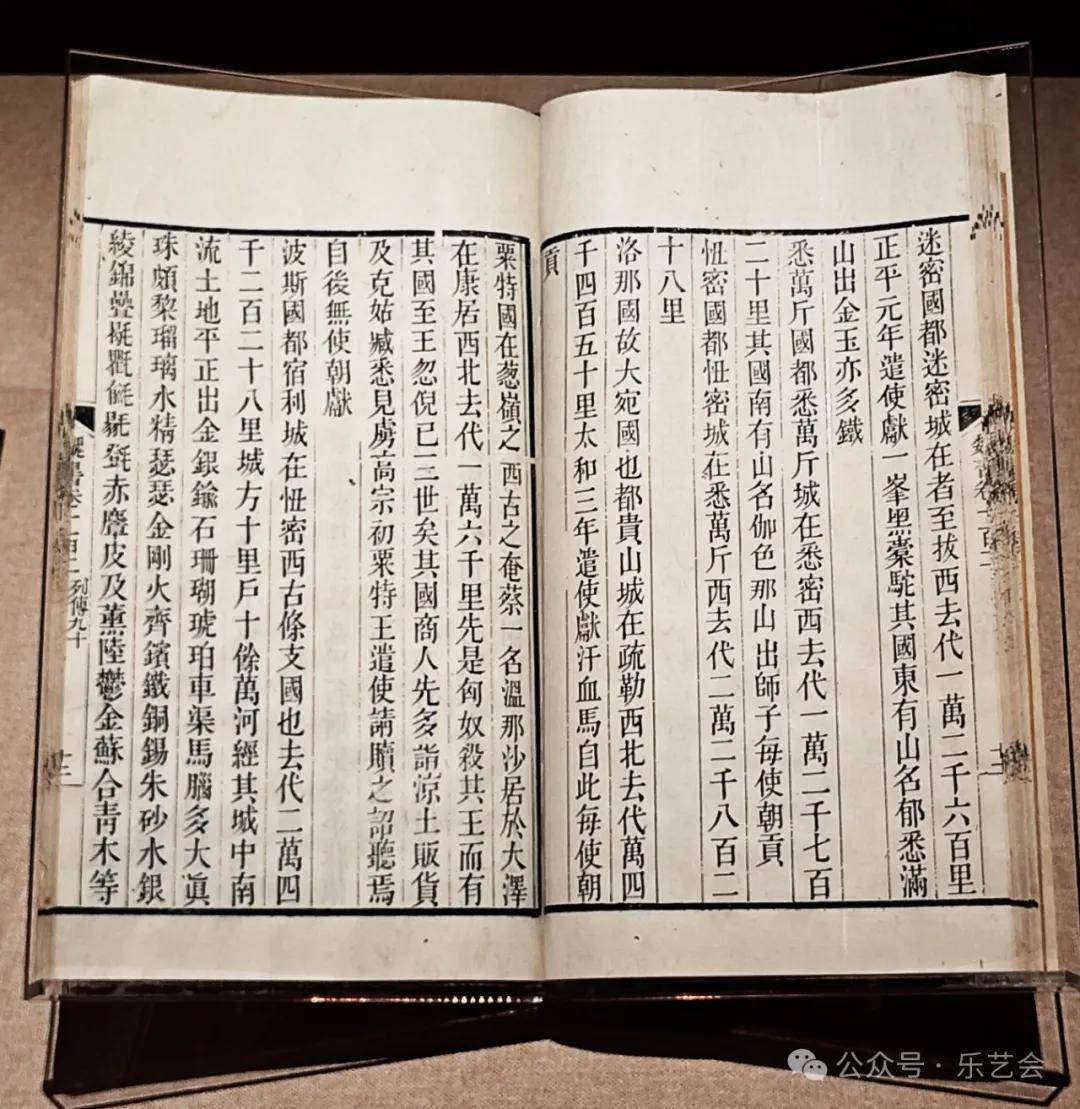 迷密國都迷密城在者至拔西去代一萬二千六百里
正平元年遣使獻一峯黑橐駝其國東有山名郁悉滿
山出金玉亦多鐵
悉萬斤國都悉萬斤城在悉密西去代一萬二千七百
二十里其國南有山名伽色那山出師子每使朝貢
忸密國都忸密城在悉萬斤西去代二萬二千八百二
十八里
洛那國故大宛國也都貴山城在疏勒西北去代萬四
千四百五十里太和三年遣使獻汗血馬自此每使朝
貢
粟特國在葱嶺之西古之奄蔡一名溫那沙居於大澤
在康居西北去代一萬六千里先是匈奴殺其王而有
其國至王忽倪已三世矣其國商人先多詣涼土販貨
及克姑臧悉見虜高宗初粟特王遣使請贖之詔聽焉
自後無使朝獻
波斯國都宿利城在忸密西古條支國也去代二萬四
千二百二十八里城方十里戶十餘萬河經其城中南
流土地平正出金銀鍮石珊瑚琥珀車渠馬腦多大眞
珠頗黎瑠璃水精瑟瑟金剛火齊鑌鐵銅錫朱砂水銀
綾錦疊毼氍毹㲪㲮赤麞皮及薰陸鬱金蘇合青木等
魏書卷一百二 列傳九十
十二
公众号·乐艺会